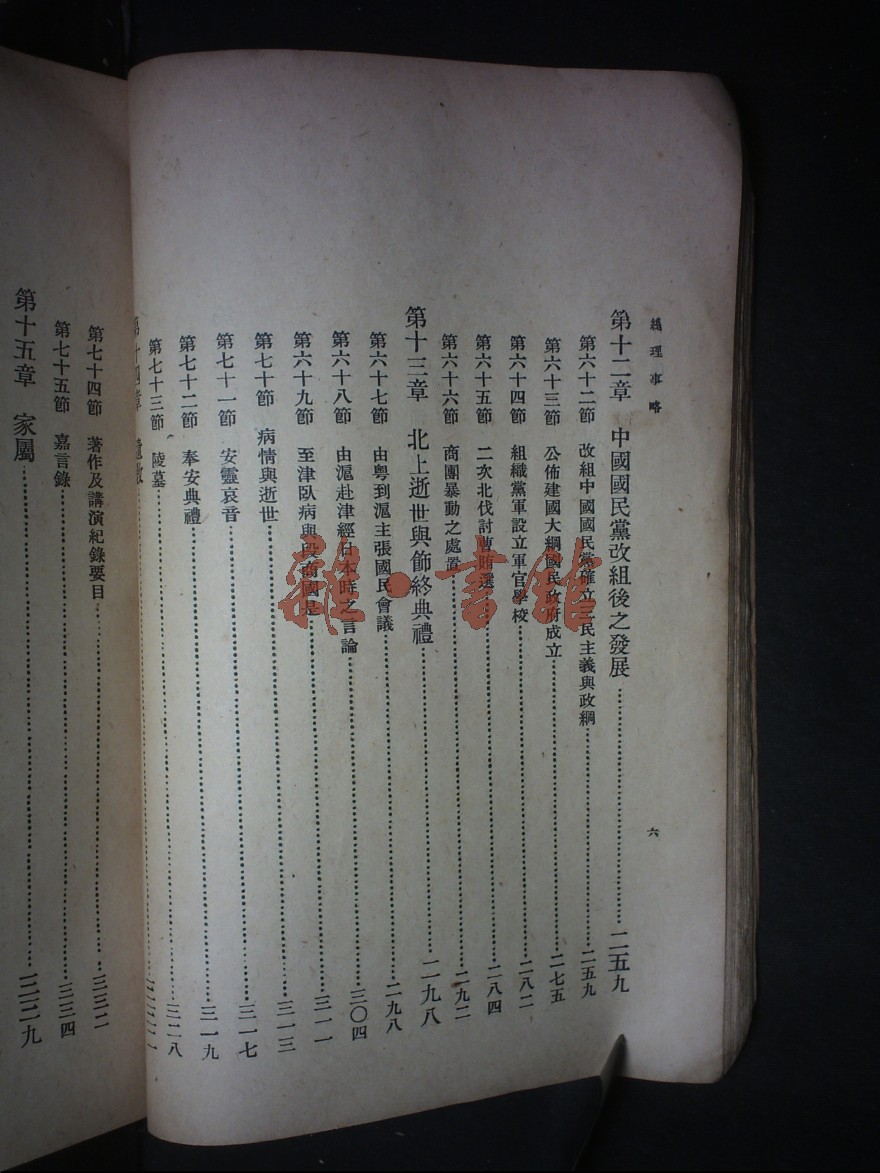 總理事略
六
第十二章 中國國民黨改組後之發展……二五九
第六十二節 改組中國國民黨確立三民主義與政綱……二五九
第六十三節 公佈建國大綱國民政府成立……二七五
第六十四節 組織黨軍設立軍官學校……二八二
第六十五節 二次北伐討曹賄選……二八四
第六十六節 商團暴動之處置……二九二
第十三章 北上逝世與飾終典禮……二九八
第六十七節 由粵到滬主張國民會議……二九八
第六十八節 由滬赴津經日本時之言論……三〇四
第六十九節 至津臥病與段商國是……三一一
第七十節 病情與逝世……三一三
第七十一節 安靈哀音……三一七
第七十二節 奉安典禮……三一九
第七十三節 陵墓……三二八
第十四章
第七十四節 著作及講演紀錄要目……三三二
第七十五節 嘉言錄……三三四
第十五章 家屬……三三九
雜·書館